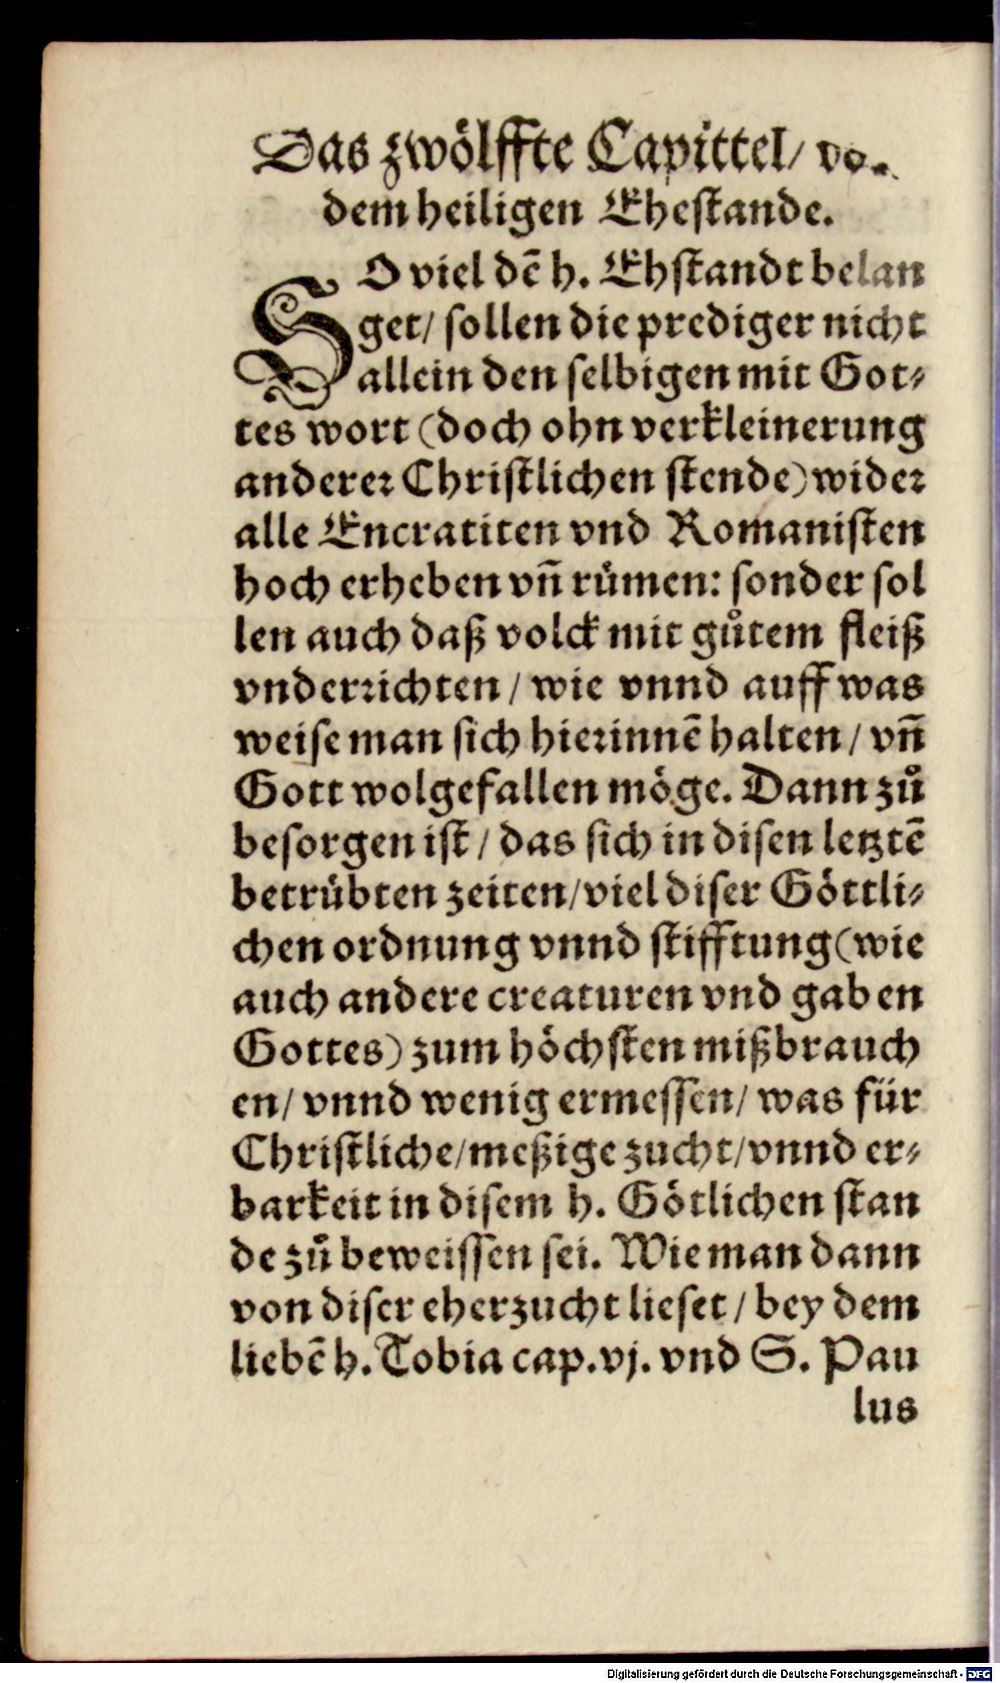 Das zwölffte Capittel/ vo.
dem heiligen Ehestande.
SO viel dē h. Ehstandt belan
get/ sollen die prediger nicht
allein den selbigen mit Got⸗
tes wort (doch ohn verkleinerung
anderer Christlichen stende) wider
alle Encratiten vnd Romanisten
hoch erheben vñ rümen: sonder sol
len auch daß volck mit gůtem fleiß
vnderrichten / wie vnnd auff was
weise man sich hierinnē halten / vñ
Gott wolgefallen möge. Dann zů
besorgen ist / das sich in disen letztē
betrübten zeiten/ viel diser Göttli⸗
chen ordnung vnnd stifftung (wie
auch andere creaturen vnd gaben
Gottes) zum höchsten mißbrauch
en/ vnnd wenig ermessen/ was für
Christliche/ meßige zucht/ vnnd er⸗
barkeit in disem h. Götlichen stan
de zů beweissen sei. Wie man dann
von diser eherzucht lieset / bey dem
liebē h. Tobia cap. vj. vnd S. Pau
lus
Digitalisierung gefördert durch die Deutsche Forschungsgemeinschaft - DFG